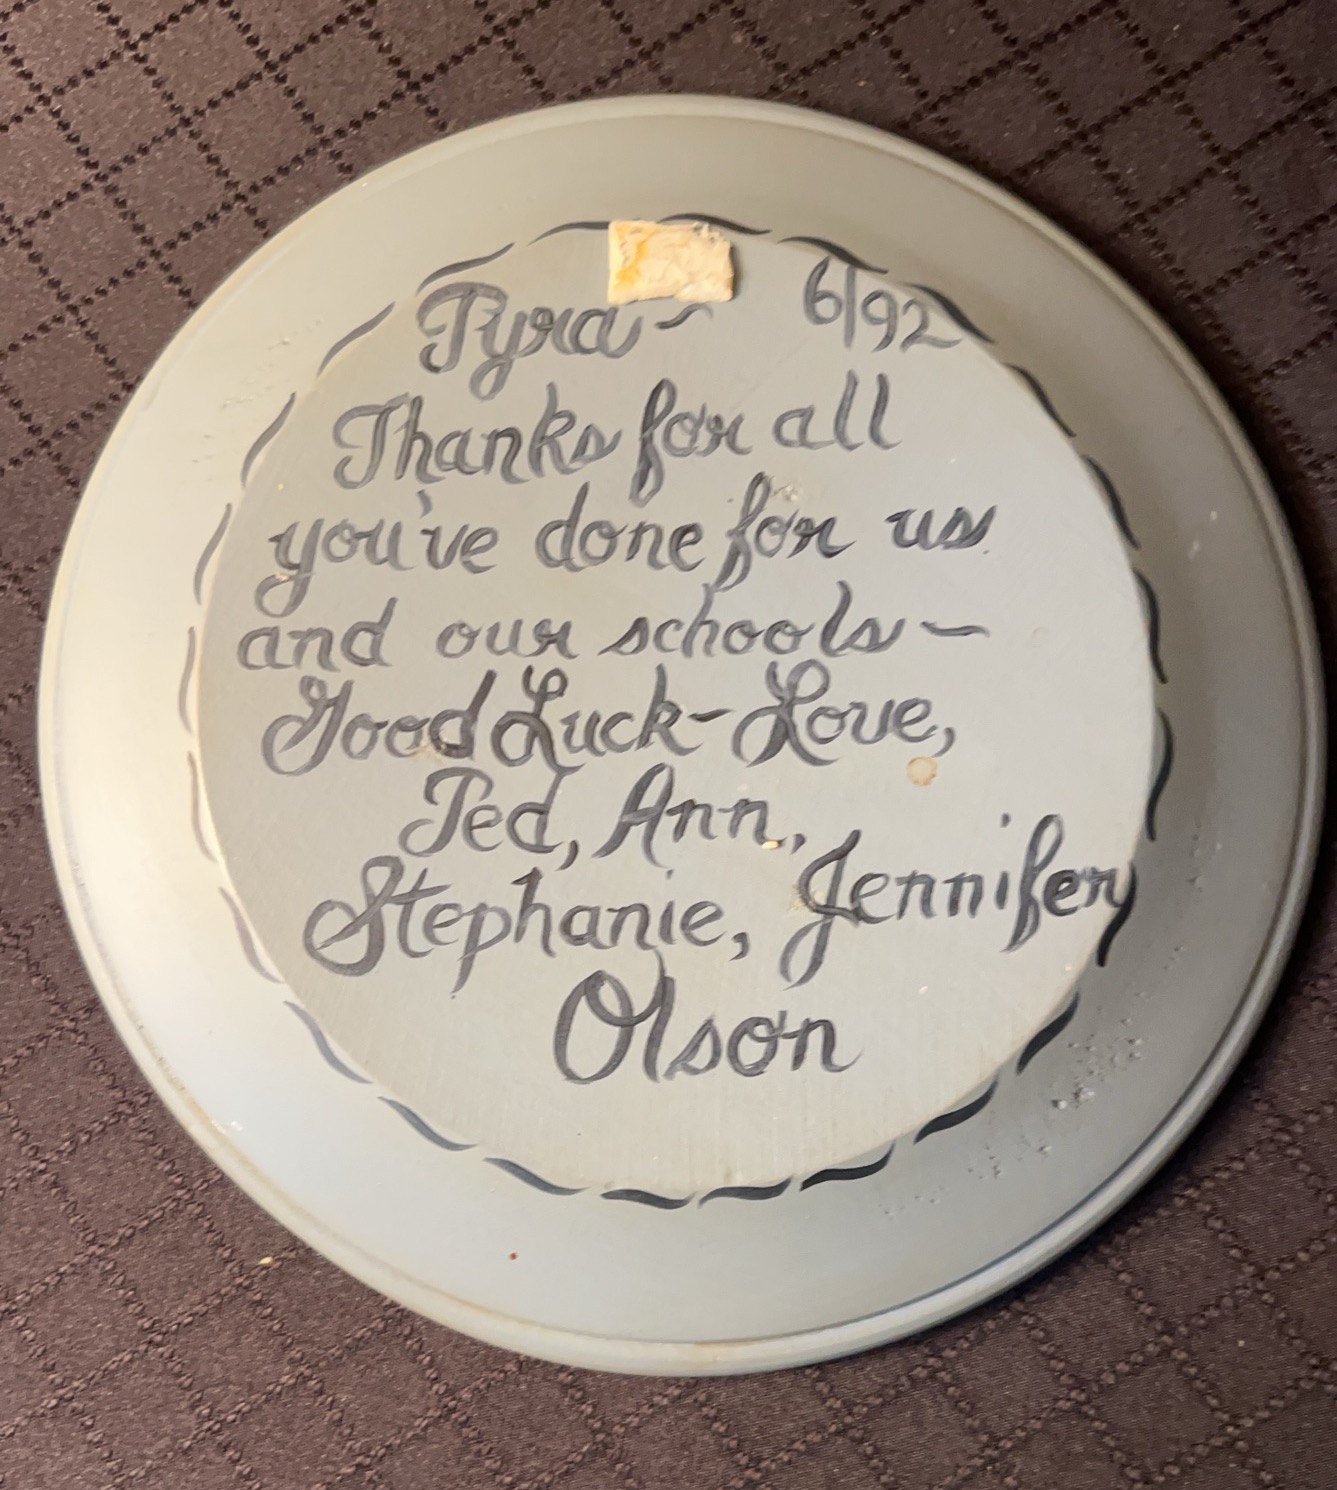 Tyra- 6/92
Thanks for all
you've done for us
and our schools-
Good Luck-Love,
Ted, Ann,
Stephanie, Jennifer
Olson